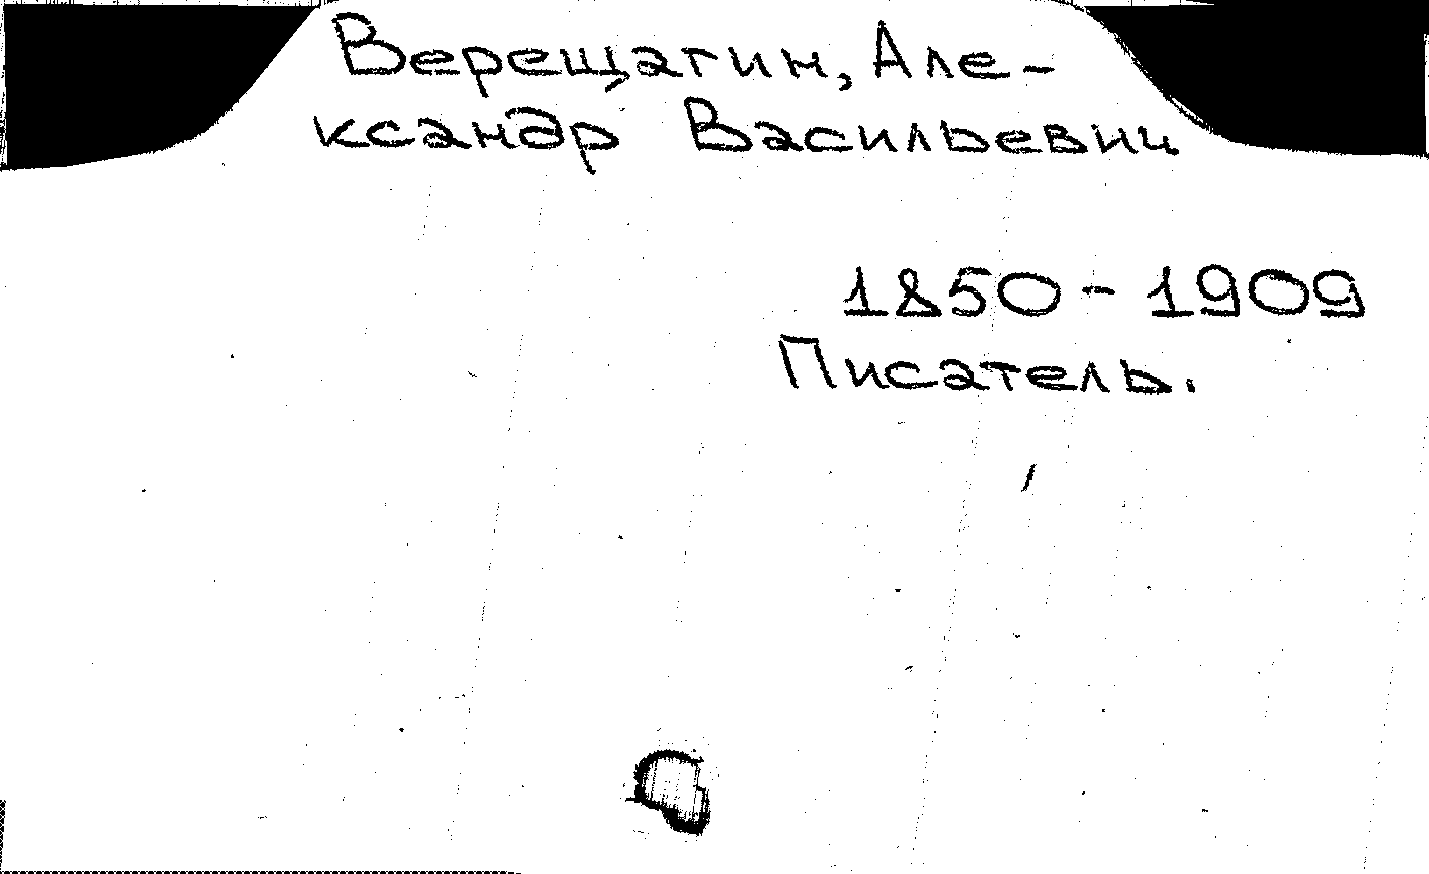 Верещагин, Але-
ксандр Васильевич
1850-1909
Писатель.